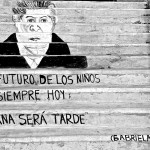 FUTURO DE LOS NIÑOS
SIEMPRE HOY;
ANA SERÁ TARDE"
(GABRIELA